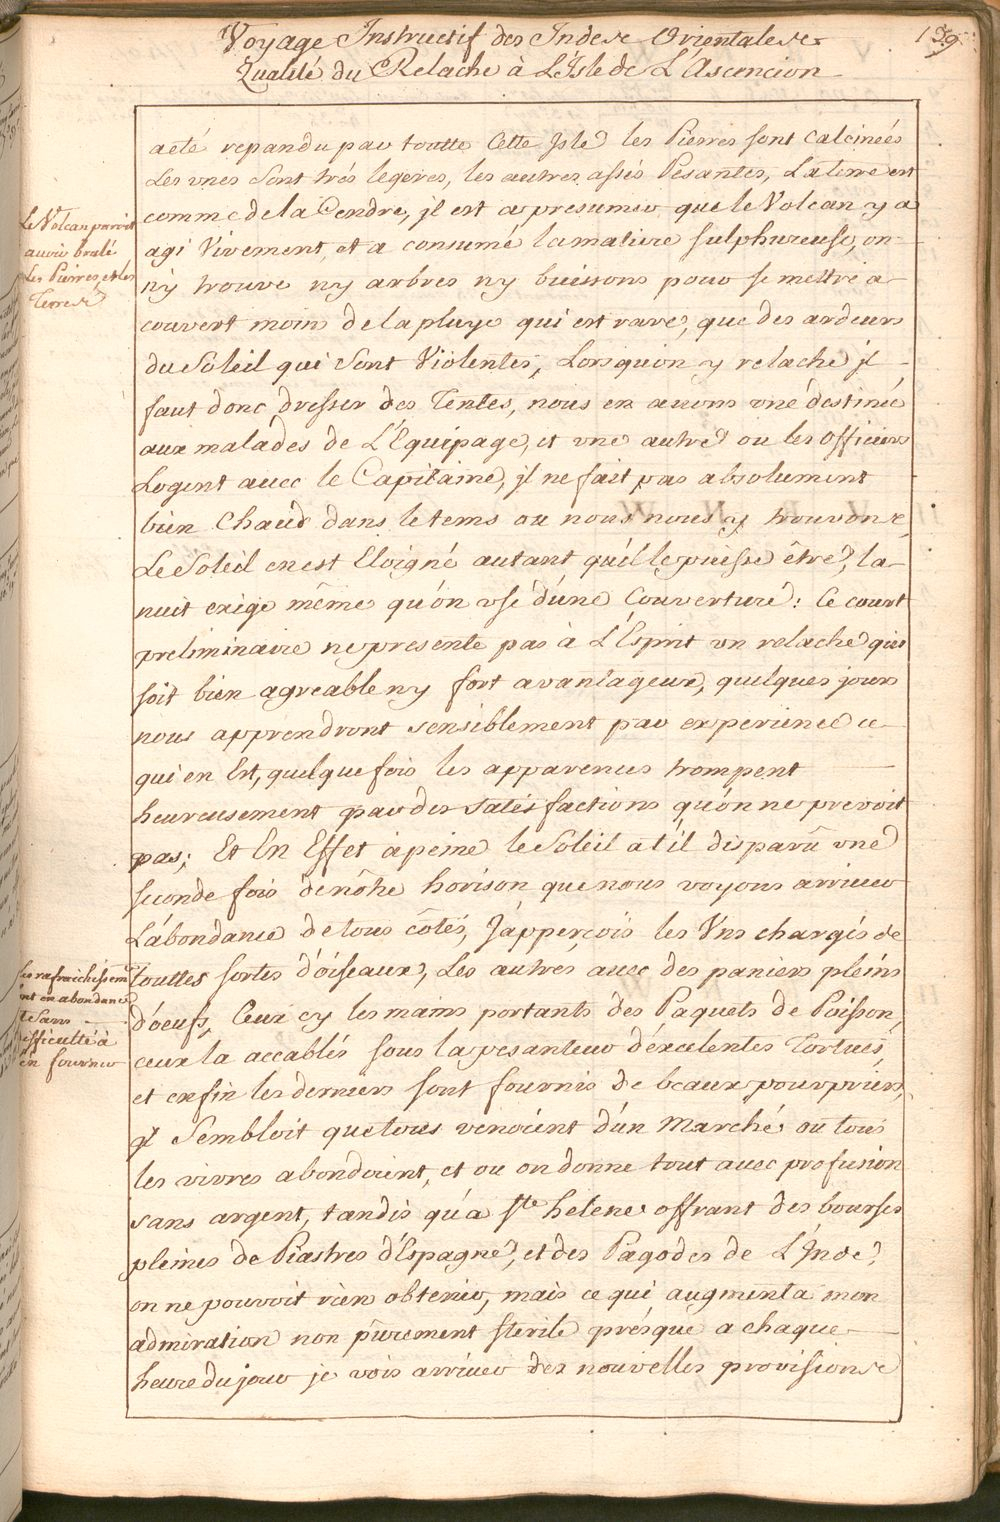 Voyage Instructif des Indes Orientales
139
Qualité du Relache à L'Isle de L'Ascencion
a eté repandu par toutte Cette Isle les Pierres sont calcinées
Les unes sont trés legeres, les autres assés Pesantes, La terre est
comme de la Cendre, jl est a presumer que le Volcan y a
agi Vivement, et a consumé la matiere sulphureuse, on
n'y trouve ny arbres ny buissons pour se mettre a
couvert moins de la pluye qui est rare, que des ardeurs
du Soleil qui sont Violentes, Lorsqu'on y relache jl
faut donc dresser des Tentes, nous en avons une destinée
aux malades de L'Equipage, et une autre ou les officiers
Logent avec le Capitaine, jl ne fait pas absolument
bien chaud dans le tems ou nous nous y trouvons
Le Soleil en est Eloigné autant qu'il le puisse être, la
nuit exige même qu'on use d'une Couverture: Ce court
preliminaire ne presente pas à L'Esprit un relache qui
soit bien agreable ny fort avantageux, quelques jours
nous apprendront sensiblement par experience ce
qui en Est, quelque fois les apparences trompent
heureusement par des satisfactions qu'on ne prevoit
pas; Et En Effet à peine le Soleil a t'il disparû une
seconde fois de nôtre horison que nous voyons arriver
L'abondance de tous côtés, J'apperçois les Uns chargés de
touttes sortes d'oiseaux, Les autres avec des paniers pleins
d'oeufs, Ceux cy les mains portants des Paquets de Poisson,
ceux la accablés sous la pesanteur d'excelentes Tortues,
et enfin les derniers sont fournis de beaux pourpriers,
jl Sembloit que tous venoient d'un Marché ou tous
les vivres abondoient, et ou on donne tout avec profusion
sans argent, tandis qu'a Ste helene offrant des bourses
pleines de Piastres d'Espagne, et des Pagodes de L'Inde,
on ne pouvoit rien obtenir, mais ce qui augmenta mon
admiration non pûrement sterile présque a chaque
heure du jour je vois arriver des nouvelles provisions
Le Volcan paroit
avoir brulé
Les Pierres, et les
Terres
Les rafraichissem
ent en abondance
et sans
difficulté à
en fournir